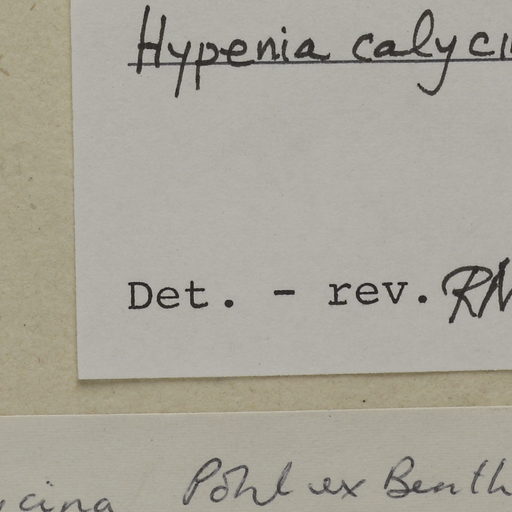 Hypenia calyci
Det. - rev. RM
ycina Pohl ex Benth